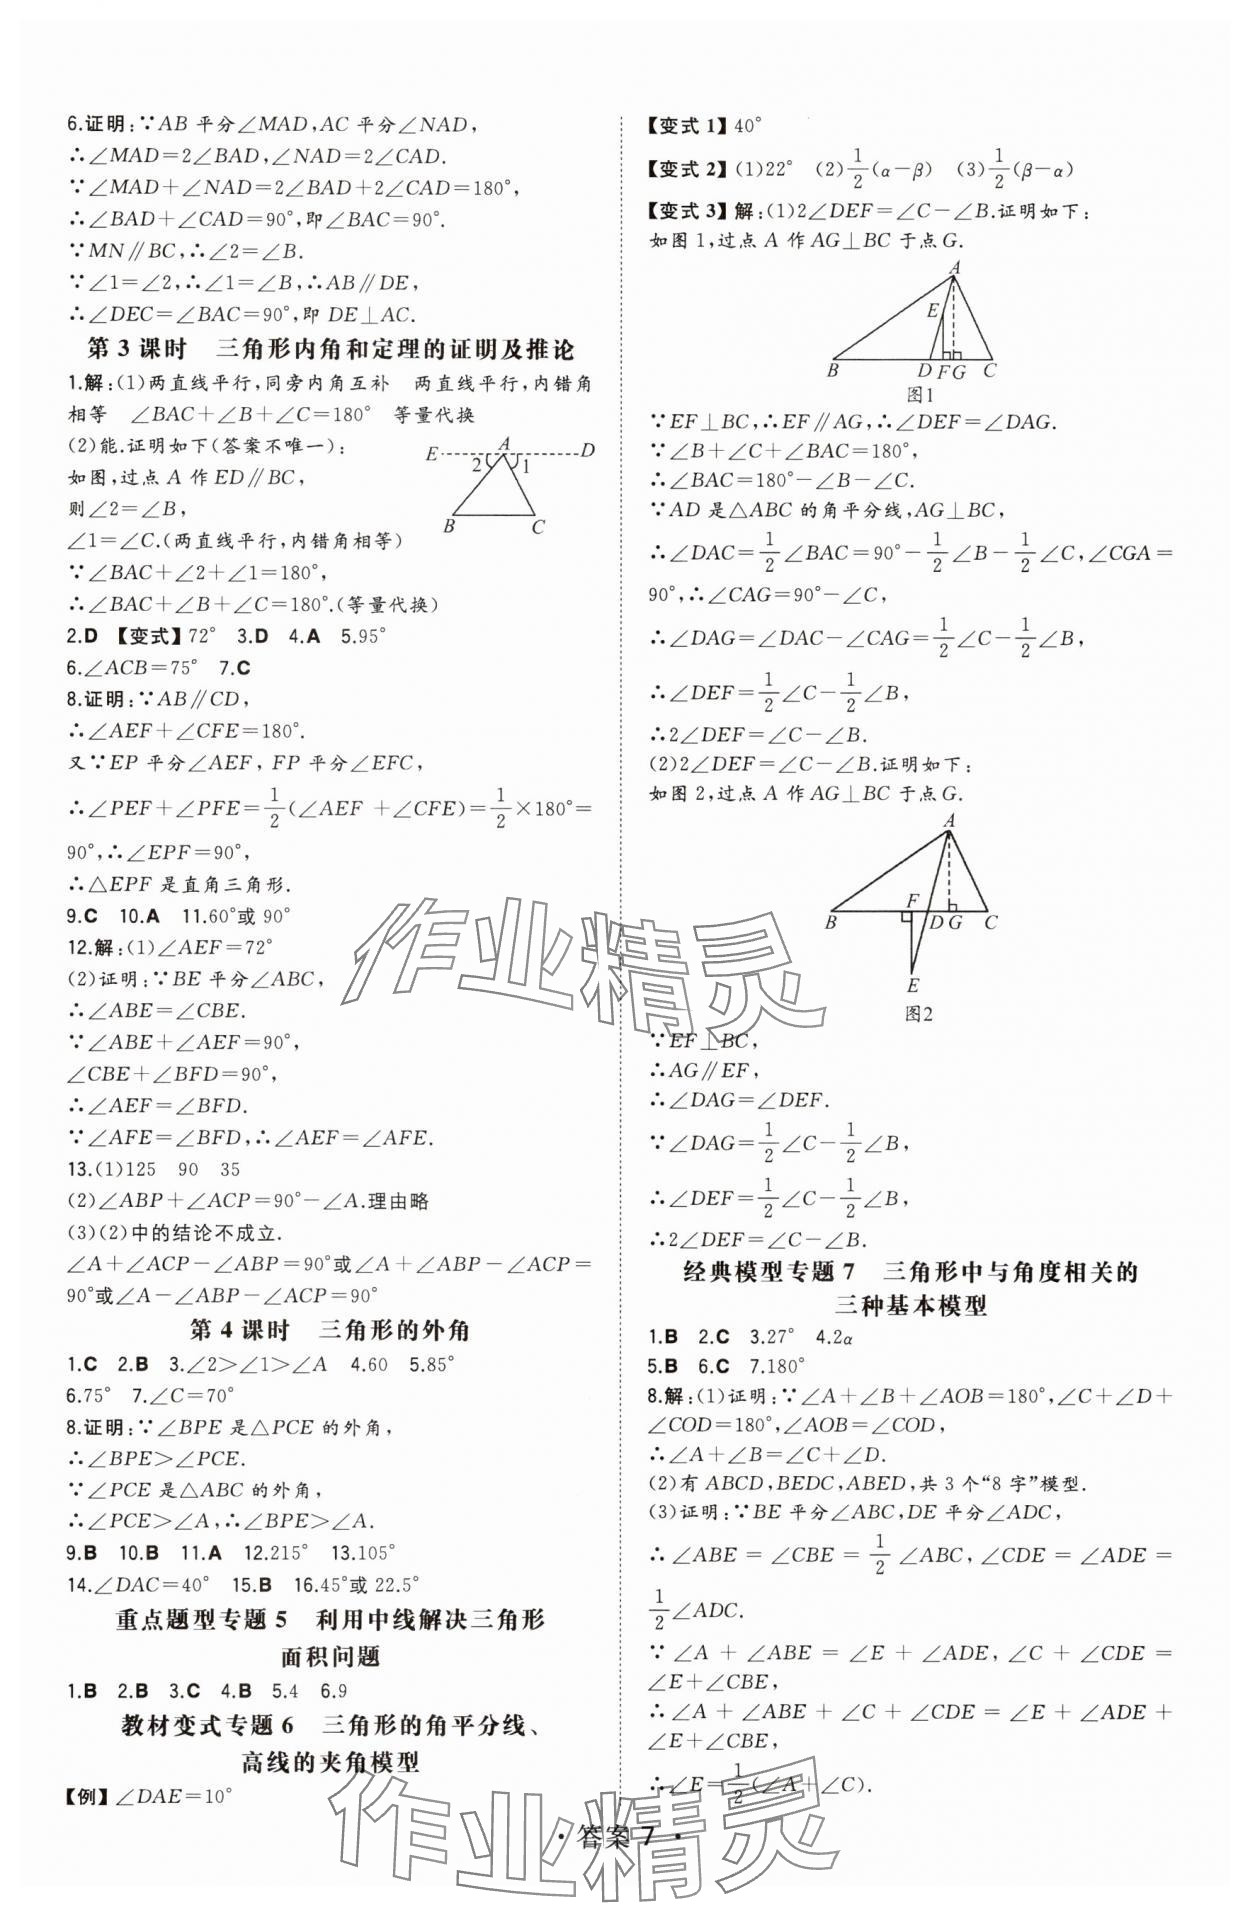 6.证明:∵AB 平分∠MAD,AC 平分∠NAD,
∴∠MAD=2∠BAD,∠NAD=2∠CAD.
∵∠MAD+∠NAD=2∠BAD+2∠CAD=180°,
∴∠BAD+∠CAD=90°,即∠BAC=90°.
∵MN∥BC,∴∠2=∠B.
∵∠1=∠2,∴∠1=∠B,∴AB∥DE,
∴∠DEC=∠BAC=90°,即 DE⊥AC.
第 3 课时 三角形内角和定理的证明及推论
1.解:(1)两直线平行,同旁内角互补 两直线平行,内错角
相等 ∠BAC+∠B+∠C=180° 等量代换
(2)能.证明如下(答案不唯一):
如图,过点 A 作 ED∥BC,
则∠2=∠B,
∠1=∠C.(两直线平行,内错角相等)
∵∠BAC+∠2+∠1=180°,
∴∠BAC+∠B+∠C=180°.(等量代换)
E A D
2 1
B C
2.D 【变式】72° 3.D 4.A 5.95°
6.∠ACB=75° 7.C
8.证明:∵AB∥CD,
∴∠AEF+∠CFE=180°.
又∵EP 平分∠AEF, FP 平分∠EFC,
∴∠PEF+∠PFE=1/2(∠AEF+∠CFE)=1/2×180°=
90°,∴∠EPF=90°,
∴△EPF 是直角三角形.
9.C 10.A 11.60°或 90°
12.解:(1)∠AEF=72°
(2)证明:∵BE 平分∠ABC,
∴∠ABE=∠CBE.
∵∠ABE+∠AEF=90°,
∠CBE+∠BFD=90°,
∴∠AEF=∠BFD.
∵∠AFE=∠BFD,∴∠AEF=∠AFE.
13.(1)125 90 35
(2)∠ABP+∠ACP=90°-∠A.理由略
(3)(2)中的结论不成立.
∠A+∠ACP-∠ABP=90°或∠A+∠ABP-∠ACP=
90°或∠A-∠ABP-∠ACP=90°
第 4 课时 三角形的外角
1.C 2.B 3.∠2>∠1>∠A 4.60 5.85°
6.75° 7.∠C=70°
8.证明:∵∠BPE 是△PCE 的外角,
∴∠BPE>∠PCE.
∵∠PCE 是△ABC 的外角,
∴∠PCE>∠A,∴∠BPE>∠A.
9.B 10.B 11.A 12.215° 13.105°
14.∠DAC=40° 15.B 16.45°或 22.5°
重点题型专题 5 利用中线解决三角形
面积问题
1.B 2.B 3.C 4.B 5.4 6.9
教材变式专题 6 三角形的角平分线、
高线的夹角模型
【例】∠DAE=10°
【变式 1】40°
【变式 2】(1)22° (2)1/2(α-β) (3)1/2(β-α)
【变式 3】解:(1)2∠DEF=∠C-∠B.证明如下:
如图 1,过点 A 作 AG⊥BC 于点 G.
A
E
B D F G C
图1
∵EF⊥BC,∴EF∥AG,∴∠DEF=∠DAG.
∵∠B+∠C+∠BAC=180°,
∴∠BAC=180°-∠B-∠C.
∵AD 是△ABC 的角平分线,AG⊥BC,
∴∠DAC=1/2∠BAC=90°-1/2∠B-1/2∠C,∠CGA=
90°,∴∠CAG=90°-∠C,
∴∠DAG=∠DAC-∠CAG=1/2∠C-1/2∠B,
∴∠DEF=1/2∠C-1/2∠B,
∴2∠DEF=∠C-∠B.
(2)2∠DEF=∠C-∠B.证明如下:
如图 2,过点 A 作 AG⊥BC 于点 G.
A
F
B D G C
E
图2
∵EF⊥BC,
∴AG∥EF,
∴∠DAG=∠DEF.
∵∠DAG=1/2∠C-1/2∠B,
∴∠DEF=1/2∠C-1/2∠B,
∴2∠DEF=∠C-∠B.
经典模型专题 7 三角形中与角度相关的
三种基本模型
1.B 2.C 3.27° 4.2α
5.B 6.C 7.180°
8.解:(1)证明:∵∠A+∠B+∠AOB=180°,∠C+∠D+
∠COD=180°,∠AOB=∠COD,
∴∠A+∠B=∠C+∠D.
(2)有 ABCD,BEDC,ABED,共 3 个“8 字”模型.
(3)证明:∵BE 平分∠ABC,DE 平分∠ADC,
∴∠ABE=∠CBE=1/2∠ABC,∠CDE=∠ADE=
1/2∠ADC.
∵∠A+∠ABE=∠E+∠ADE,∠C+∠CDE=
∠E+∠CBE,
∴∠A+∠ABE+∠C+∠CDE=∠E+∠ADE+
∠E+∠CBE,
∴∠E=1/2(∠A+∠C).
作业精灵
作业精灵
·答案 7·